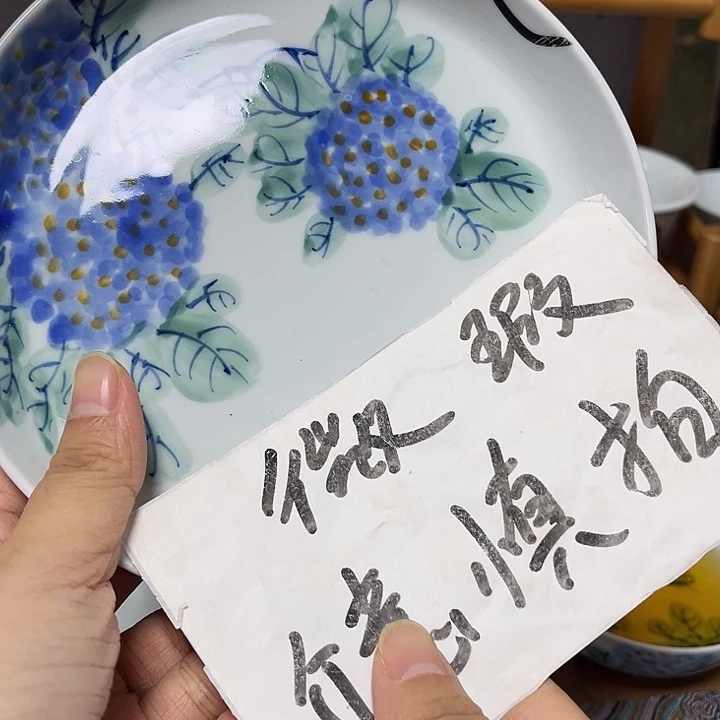 微瑕
介意慎拍